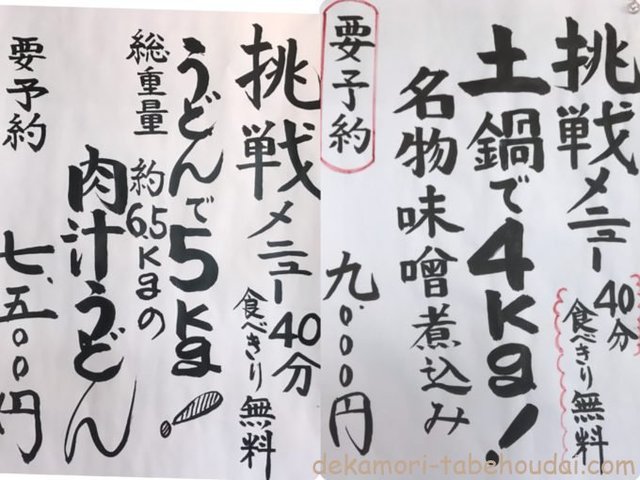 挑戦メニュー40分
食べきり無料
土鍋で4kg!
名物味噌煮込み
要予約
九、000円
挑戦メニュー40分
食べきり無料
うどんで5kg!
総重量 約6.5kgの
肉汁うどん
要予約
七、五00円
dekamori-tabehoudai.com